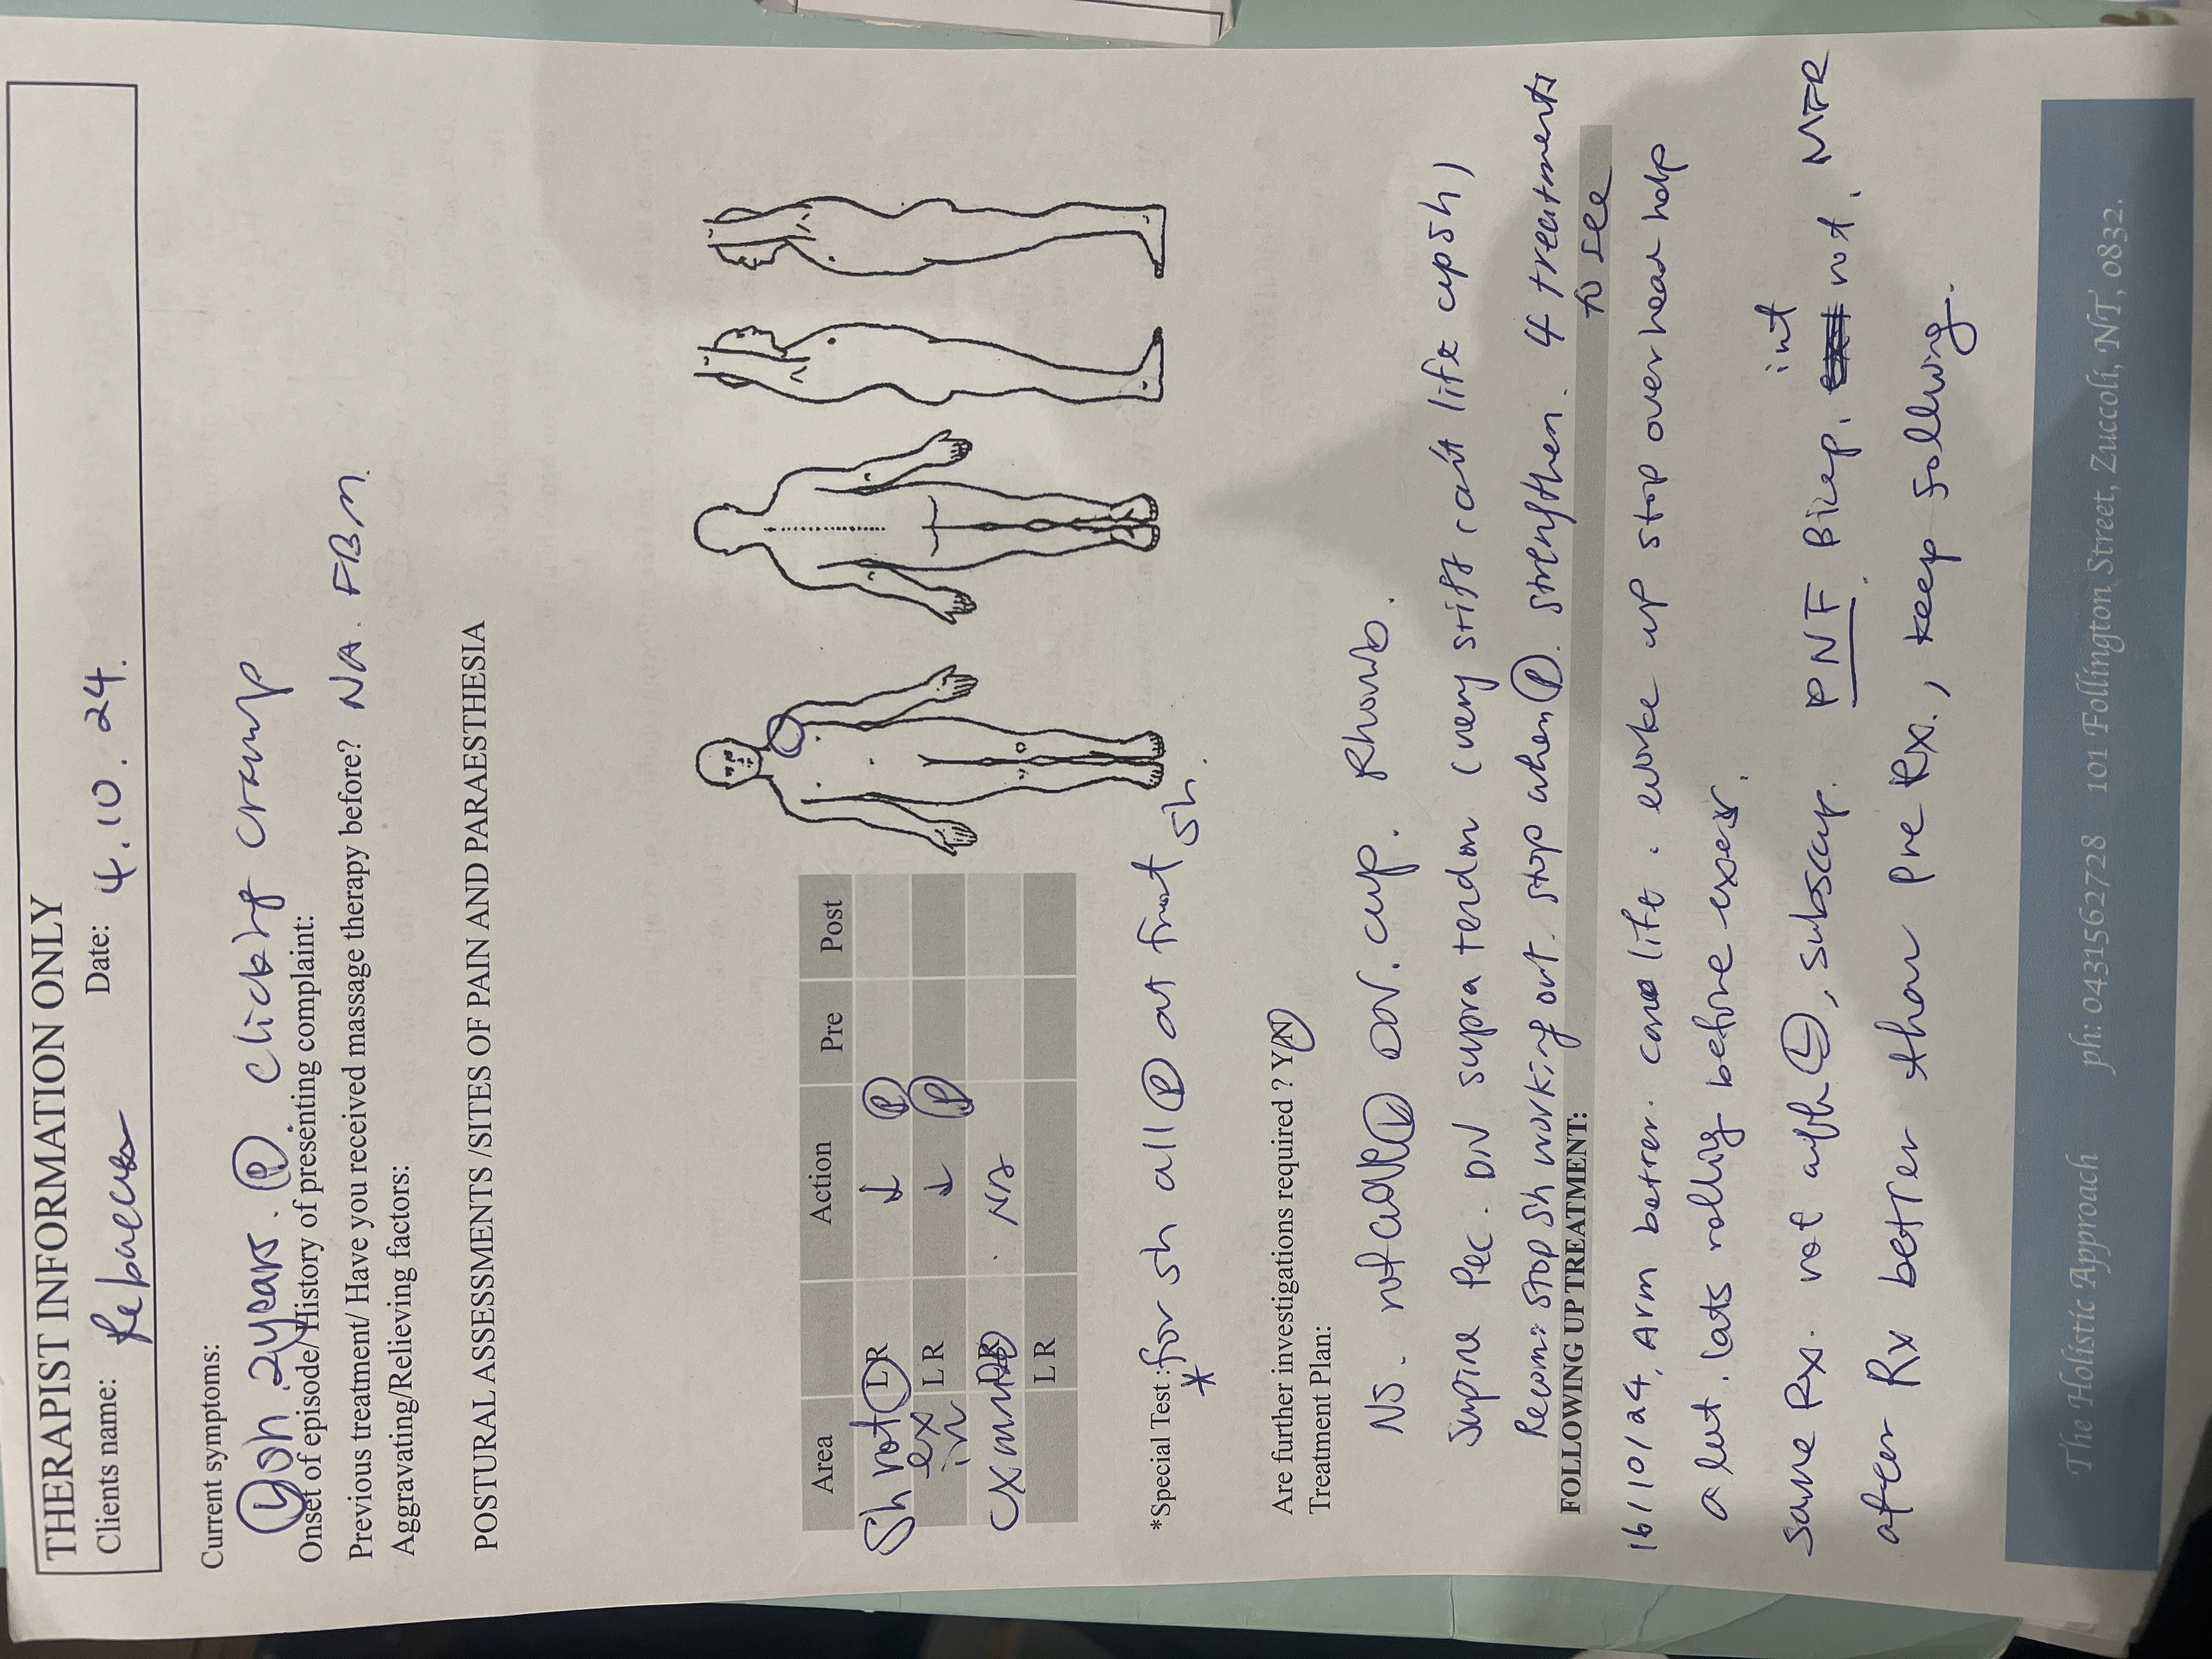 THERAPIST INFORMATION ONLY
Clients name: Rebaecca Date: 4.10.24.
Current symptoms:
sh 2years. P clicking cramp
Onset of episode/History of presenting complaint:
Previous treatment/ Have you received massage therapy before? NA. FBM.
Aggravating/Relieving factors:
POSTURAL ASSESSMENTS /SITES OF PAIN AND PARAESTHESIA
Area Action Pre Post
Sh rot L R ↓ P
ex L R ↓ P
in
Cx NAD
L R
*Special Test: for sh all P at front sh.
*
Are further investigations required ? Y/N
Treatment Plan:
NS. L DN. cup. Rhomb.
Supine Pec. DN supra tendon (very stiff can't life up sh)
Recom: stop sh working out. stop when P. strengthen. 4 treatments
to see
FOLLOWING UP TREATMENT:
16/10/24. Arm better. life. woke up stop overhead help
a lot. lats rolling before exer.
int
same Rx. L, subscap. PNF. Bicep. rot. MFR
after Rx better than pre Rx., keep following.
The Holistic Approach ph: 0431562728 101 Follington Street, Zuccoli, NT, 0832.